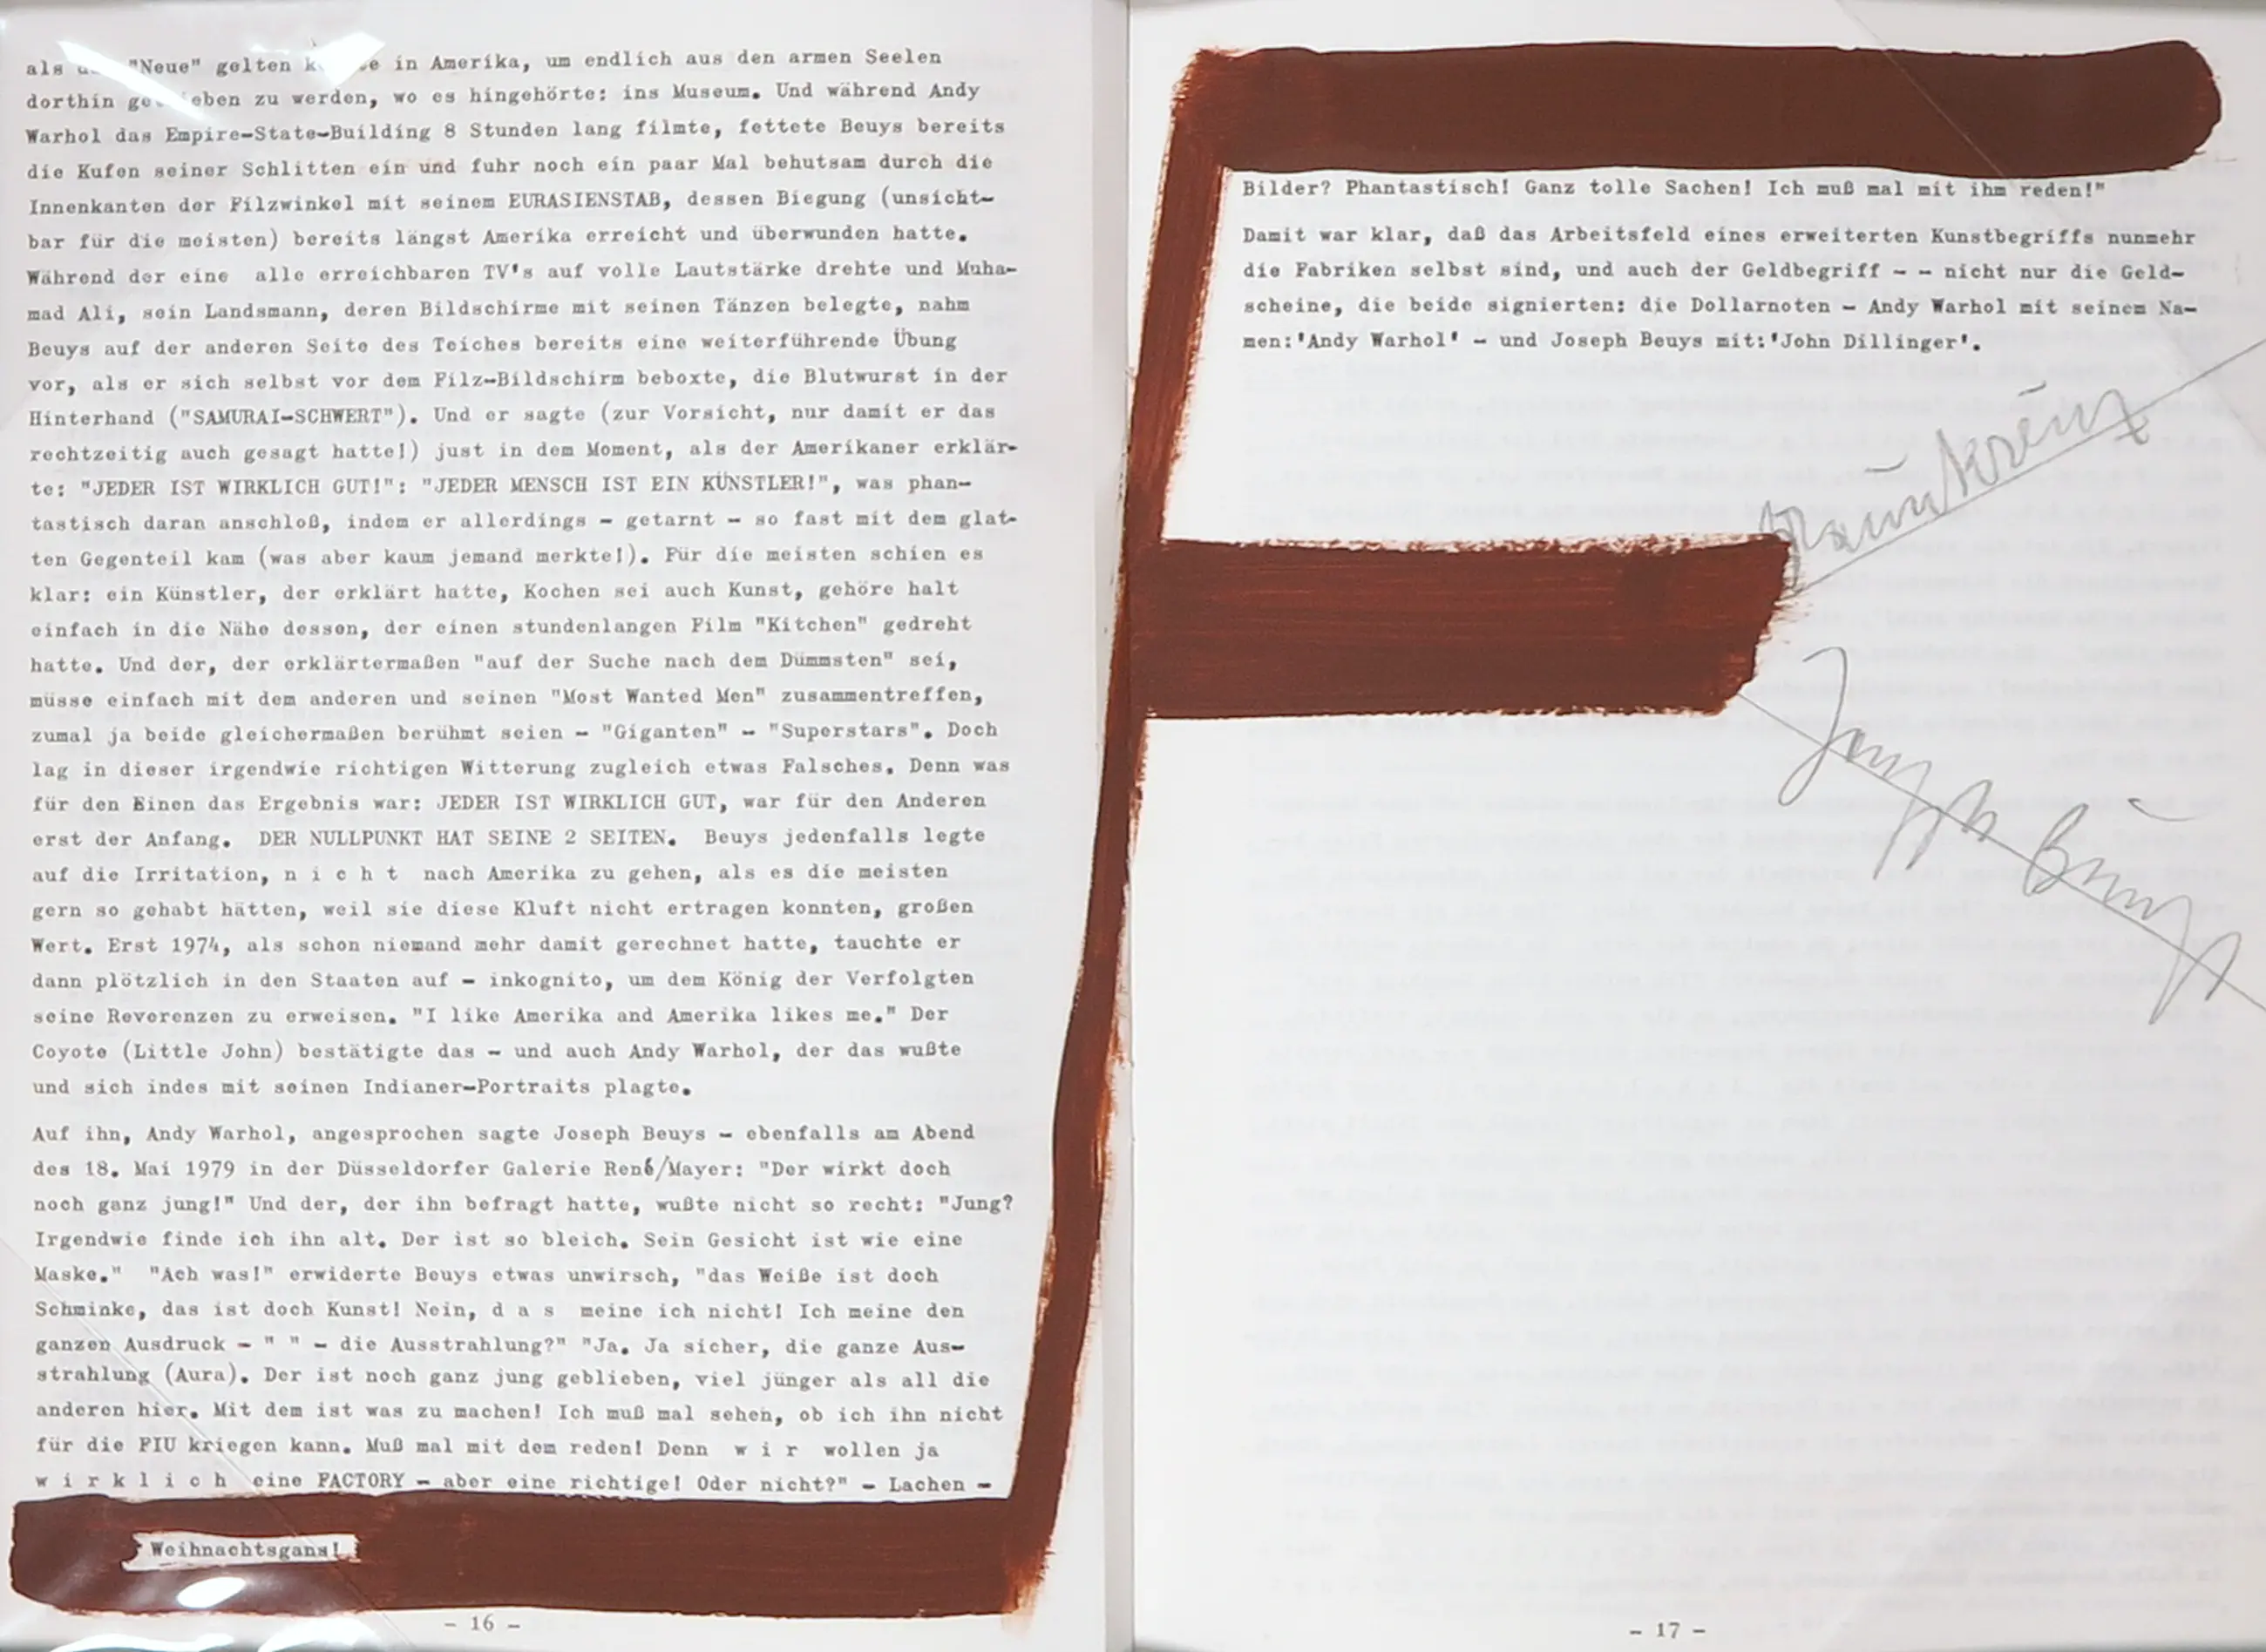 als "Neue" gelten in Amerika, um endlich aus den armen Seelen
dorthin zu werden, wo es hingehörte: ins Museum. Und während Andy
Warhol das Empire-State-Building 8 Stunden lang filmte, fettete Beuys bereits
die Kufen seiner Schlitten ein und fuhr noch ein paar Mal behutsam durch die
Innenkanten der Filzwinkel mit seinem EURASIENSTAB, dessen Biegung (unsicht-
bar für die meisten) bereits längst Amerika erreicht und überwunden hatte.
Während der eine alle erreichbaren TV's auf volle Lautstärke drehte und Muha-
mad Ali, sein Landsmann, deren Bildschirme mit seinen Tänzen belegte, nahm
Beuys auf der anderen Seite des Teiches bereits eine weiterführende Übung
vor, als er sich selbst vor dem Filz-Bildschirm beboxte, die Blutwurst in der
Hinterhand ("SAMURAI-SCHWERT"). Und er sagte (zur Vorsicht, nur damit er das
rechtzeitig auch gesagt hatte!) just in dem Moment, als der Amerikaner erklär-
te: "JEDER IST WIRKLICH GUT!": "JEDER MENSCH IST EIN KÜNSTLER!", was phan-
tastisch daran anschloß, indem er allerdings - getarnt - so fast mit dem glat-
ten Gegenteil kam (was aber kaum jemand merkte!). Für die meisten schien es
klar: ein Künstler, der erklärt hatte, Kochen sei auch Kunst, gehöre halt
einfach in die Nähe dessen, der einen stundenlangen Film "Kitchen" gedreht
hatte. Und der, der erklärtermaßen "auf der Suche nach dem Dümmsten" sei,
müsse einfach mit dem anderen und seinen "Most Wanted Men" zusammentreffen,
zumal ja beide gleichermaßen berühmt seien - "Giganten" - "Superstars". Doch
lag in dieser irgendwie richtigen Witterung zugleich etwas Falsches. Denn was
für den Einen das Ergebnis war: JEDER IST WIRKLICH GUT, war für den Anderen
erst der Anfang. DER NULLPUNKT HAT SEINE 2 SEITEN. Beuys jedenfalls legte
auf die Irritation, n i c h t nach Amerika zu gehen, als es die meisten
gern so gehabt hätten, weil sie diese Kluft nicht ertragen konnten, großen
Wert. Erst 1974, als schon niemand mehr damit gerechnet hatte, tauchte er
dann plötzlich in den Staaten auf - inkognito, um dem König der Verfolgten
seine Reverenzen zu erweisen. "I like Amerika and Amerika likes me." Der
Coyote (Little John) bestätigte das - und auch Andy Warhol, der das wußte
und sich indes mit seinen Indianer-Portraits plagte.
Auf ihn, Andy Warhol, angesprochen sagte Joseph Beuys - ebenfalls am Abend
des 18. Mai 1979 in der Düsseldorfer Galerie René/Mayer: "Der wirkt doch
noch ganz jung!" Und der, der ihn befragt hatte, wußte nicht so recht: "Jung?
Irgendwie finde ich ihn alt. Der ist so bleich. Sein Gesicht ist wie eine
Maske." "Ach was!" erwiderte Beuys etwas unwirsch, "das Weiße ist doch
Schminke, das ist doch Kunst! Nein, d a s meine ich nicht! Ich meine den
ganzen Ausdruck - " " - die Ausstrahlung?" "Ja. Ja sicher, die ganze Aus-
strahlung (Aura). Der ist noch ganz jung geblieben, viel jünger als all die
anderen hier. Mit dem ist was zu machen! Ich muß mal sehen, ob ich ihn nicht
für die FIU kriegen kann. Muß mal mit dem reden! Denn w i r wollen ja
w i r k l i c h eine FACTORY - aber eine richtige! Oder nicht?" - Lachen -
Weihnachtsgans!
- 16 -
Bilder? Phantastisch! Ganz tolle Sachen! Ich muß mal mit ihm reden!"
Damit war klar, daß das Arbeitsfeld eines erweiterten Kunstbegriffs nunmehr
die Fabriken selbst sind, und auch der Geldbegriff - - nicht nur die Geld-
scheine, die beide signierten: die Dollarnoten - Andy Warhol mit seinem Na-
men:'Andy Warhol' - und Joseph Beuys mit:'John Dillinger'.
Braunkreuz
Joseph Beuys
- 17 -